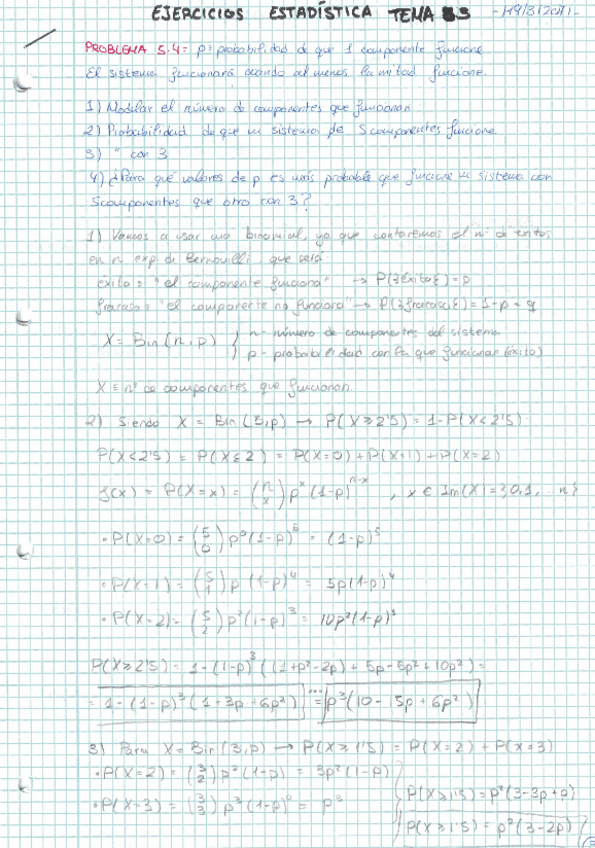 EJERCICIOS ESTADÍSTICA TEMA 5 - 19/3/2011 -
PROBLEMA 5.4: p = probabilidad de que 1 componente funcione
El sistema funcionará cuando al menos la mitad funcione.
1) Modelar el número de componentes que funcionan
2) Probabilidad de que un sistema de 5 componentes funcione
3) " con 3
4) ¿Para qué valores de p es más probable que funcione un sistema con
5 componentes que otro con 3?
1) Vamos a usar una binomial, ya que contaremos el nº de éxitos
en n exp. de Bernouilli que será
éxito = "el componente funciona" → P({éxito}) = p
fracaso = "el componente no funciona" → P({fracaso}) = 1-p = q
X = Bin(n,p) { n - número de componentes del sistema
p - probabilidad con la que funcionan (éxito)
X ≡ nº de componentes que funcionan.
2) Siendo X = Bin(5,p) → P(X≥2'5) = 1-P(X<2'5)
P(X<2'5) = P(X≤2) = P(X=0) + P(X=1) + P(X=2)
f(x) = P(X=x) = (n x) p^x (1-p)^n-x , x ∈ Im(X) = {0,1,... n}
• P(X=0) = (5 0) p⁰(1-p)⁵ = (1-p)⁵
• P(X=1) = (5 1) p (1-p)⁴ = 5p(1-p)⁴
• P(X=2) = (5 2) p²(1-p)³ = 10p²(1-p)³
P(X≥2'5) = 1-(1-p)³((1+p²-2p) + 5p-5p²+10p²) =
= 1-(1-p)³(1+3p+6p²) ...= p³(10-15p+6p²)
3) Para X = Bin(3,p) → P(X≥1'5) = P(X=2) + P(X=3)
• P(X=2) = (3 2) p²(1-p) = 3p²(1-p)
• P(X=3) = (3 3) p³(1-p)⁰ = p³
P(X≥1'5) = p²(3-3p+p)
P(X≥1'5) = p²(3-2p)